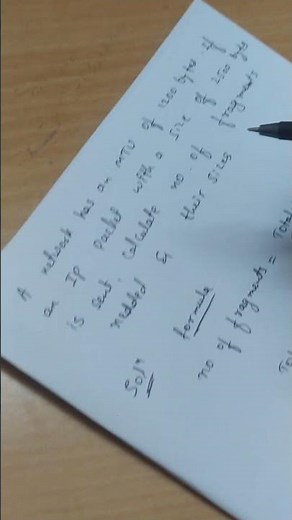 A network has an MTU of 1200 bytes if
an IP packet with a size of 2500 bytes
is sent calculate no. of fragments
needed & their sizes
Soln
formula
no of fragments = Total
Tot